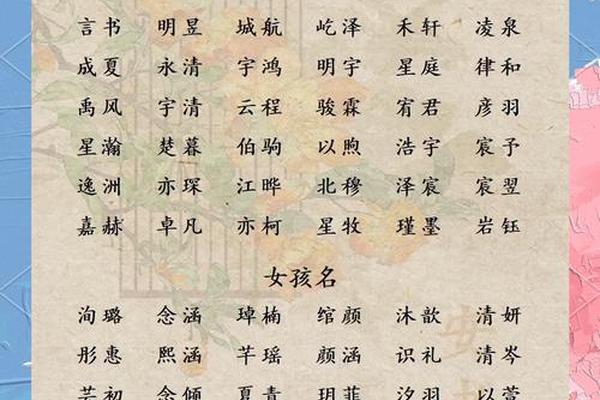 言书 明昱 城航 屹泽 禾轩 凌泉
成夏 永清 宇鸿 明宇 星庭 律和
禹风 宇清 云程 骏霖 宥君 彦羽
星瀚 楚暮 伯驹 以煦 浩宇 宸予
逸洲 亦琛 江晔 北穆 泽宸 宸翌
嘉赫 卓凡 亦柯 星牧 瑾墨 岩钰
女孩名
洵璐 念涵 琸楠 绾颜 沐歆 清妍
彤惠 熙涵 芊瑶 颜涵 识礼 清岑
芸初 念倾 夏青 玥菲 汐羽 以萱